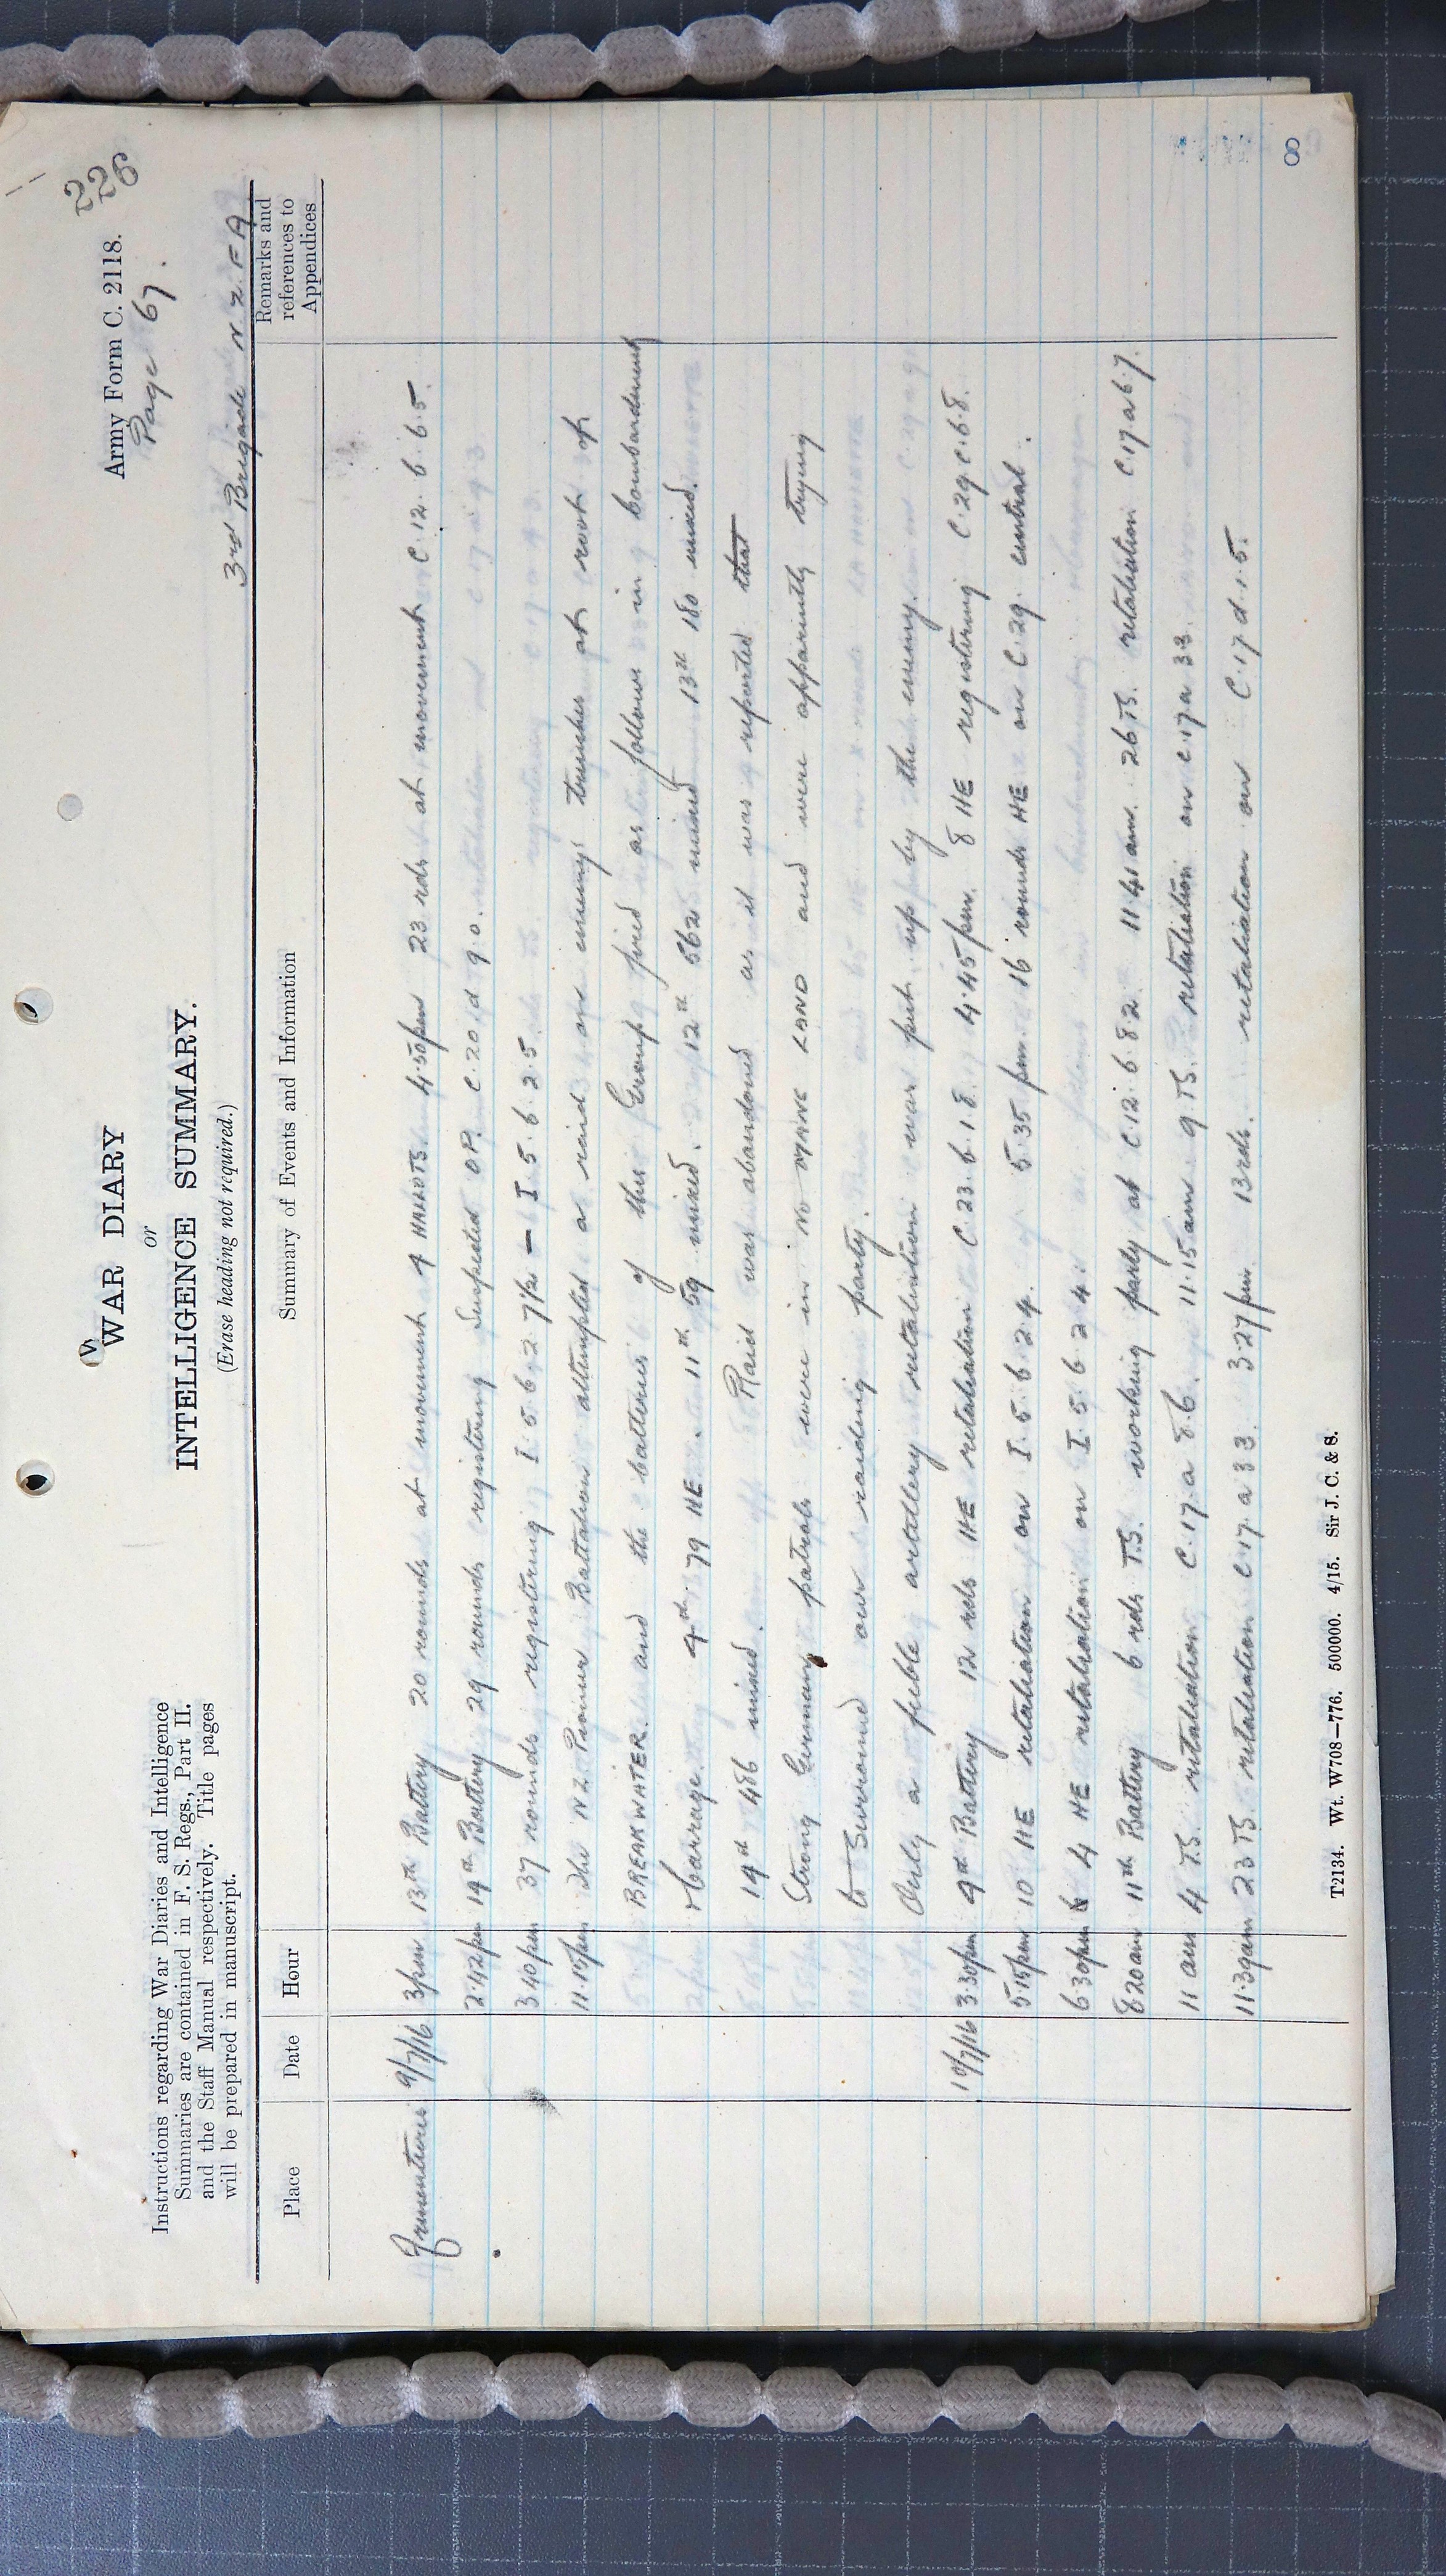 226
Army Form C. 2118.
Page 67.
WAR DIARY
or
INTELLIGENCE SUMMARY.
(Erase heading not required.)
3rd Brigade N.Z.F.A
Instructions regarding War Diaries and Intelligence
Summaries are contained in F. S. Regs., Part II.
and the Staff Manual respectively. Title pages
will be prepared in manuscript.
Place Date Hour Summary of Events and Information Remarks and references to Appendices
Armentieres 9/7/16 3pm 13th Battery 20 rounds at movement 4 4.50pm 23 rds at movement C.12.b.6.5.
2.42pm 19th Battery 29 rounds registering Suspected OP. C.20.d 9.0.
3.40pm 37 rounds registering I.5.b.2.7½ — I.5.b.2.5
11.15pm The NZ Pioneer Battalion attempted a raid on enemys trenches at root of
BREAKWATER. and the batteries of this Group fired as follows in bombardment
& barrage. 9th 79 HE. 11th 59 mixed. 12th 562 mixed 13th 180 mixed.
19th 486 mixed. Raid was abandoned as it was reported that
Strong German patrols were in NO MANS LAND and were apparintly trying
to Surround our raiding party.
Only a feeble artillery retaliation was put up by the enemy.
10/7/16 3.30pm 9th Battery 12 rds HE retaliation C.23.b.1.8. 4.45pm. 8 HE registering C.29.c.6.8.
5.15pm 10 HE retaliation on I.5.b.2.4. 5.35pm. 16 rounds HE on C.29. central.
6.30pm 4 HE retaliation on I.5.b.2.4.
8.20am 11th Battery 6 rds T.S. working party at C.12.b.8.2 11.41 am. 26 TS. retaliation C.17.a.6.7.
11 am 4 T.S. retaliation C.17.a 8.6. 11.15 am. 9 TS. retaliation on C.17.a 33.
11.39am 23 TS retaliation C.17.a 33. 3.27pm. 13 rds. retaliation on C.17.d.1.5.
T2134. Wt. W708—776. 500000. 4/15. Sir J. C. & S.
8